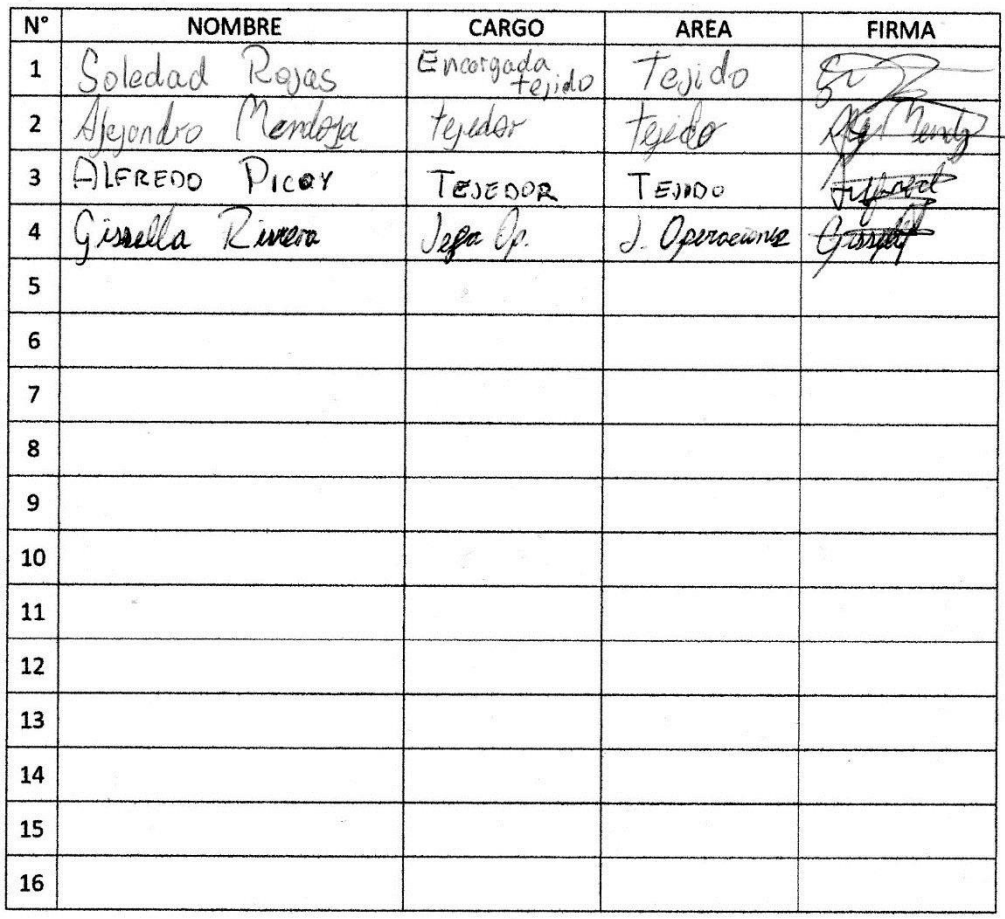 N° NOMBRE CARGO AREA FIRMA
1 Soledad Rojas Encargada tejido Tejido
2 Alejandro Mendoza tejedor tejido
3 ALFREDO PICOY TEJEDOR TEJIDO
4 Gissella Rivera Jefa Op. J. Operaciones
5
6
7
8
9
10
11
12
13
14
15
16